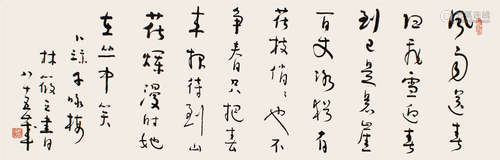 风雨送春
归飞雪迎春
到已是悬崖
百丈冰犹有
花枝俏俏也不
争春只把春
来报待到山
花烂漫时她
在丛中笑
卜算子咏梅
林筱之书
八十五